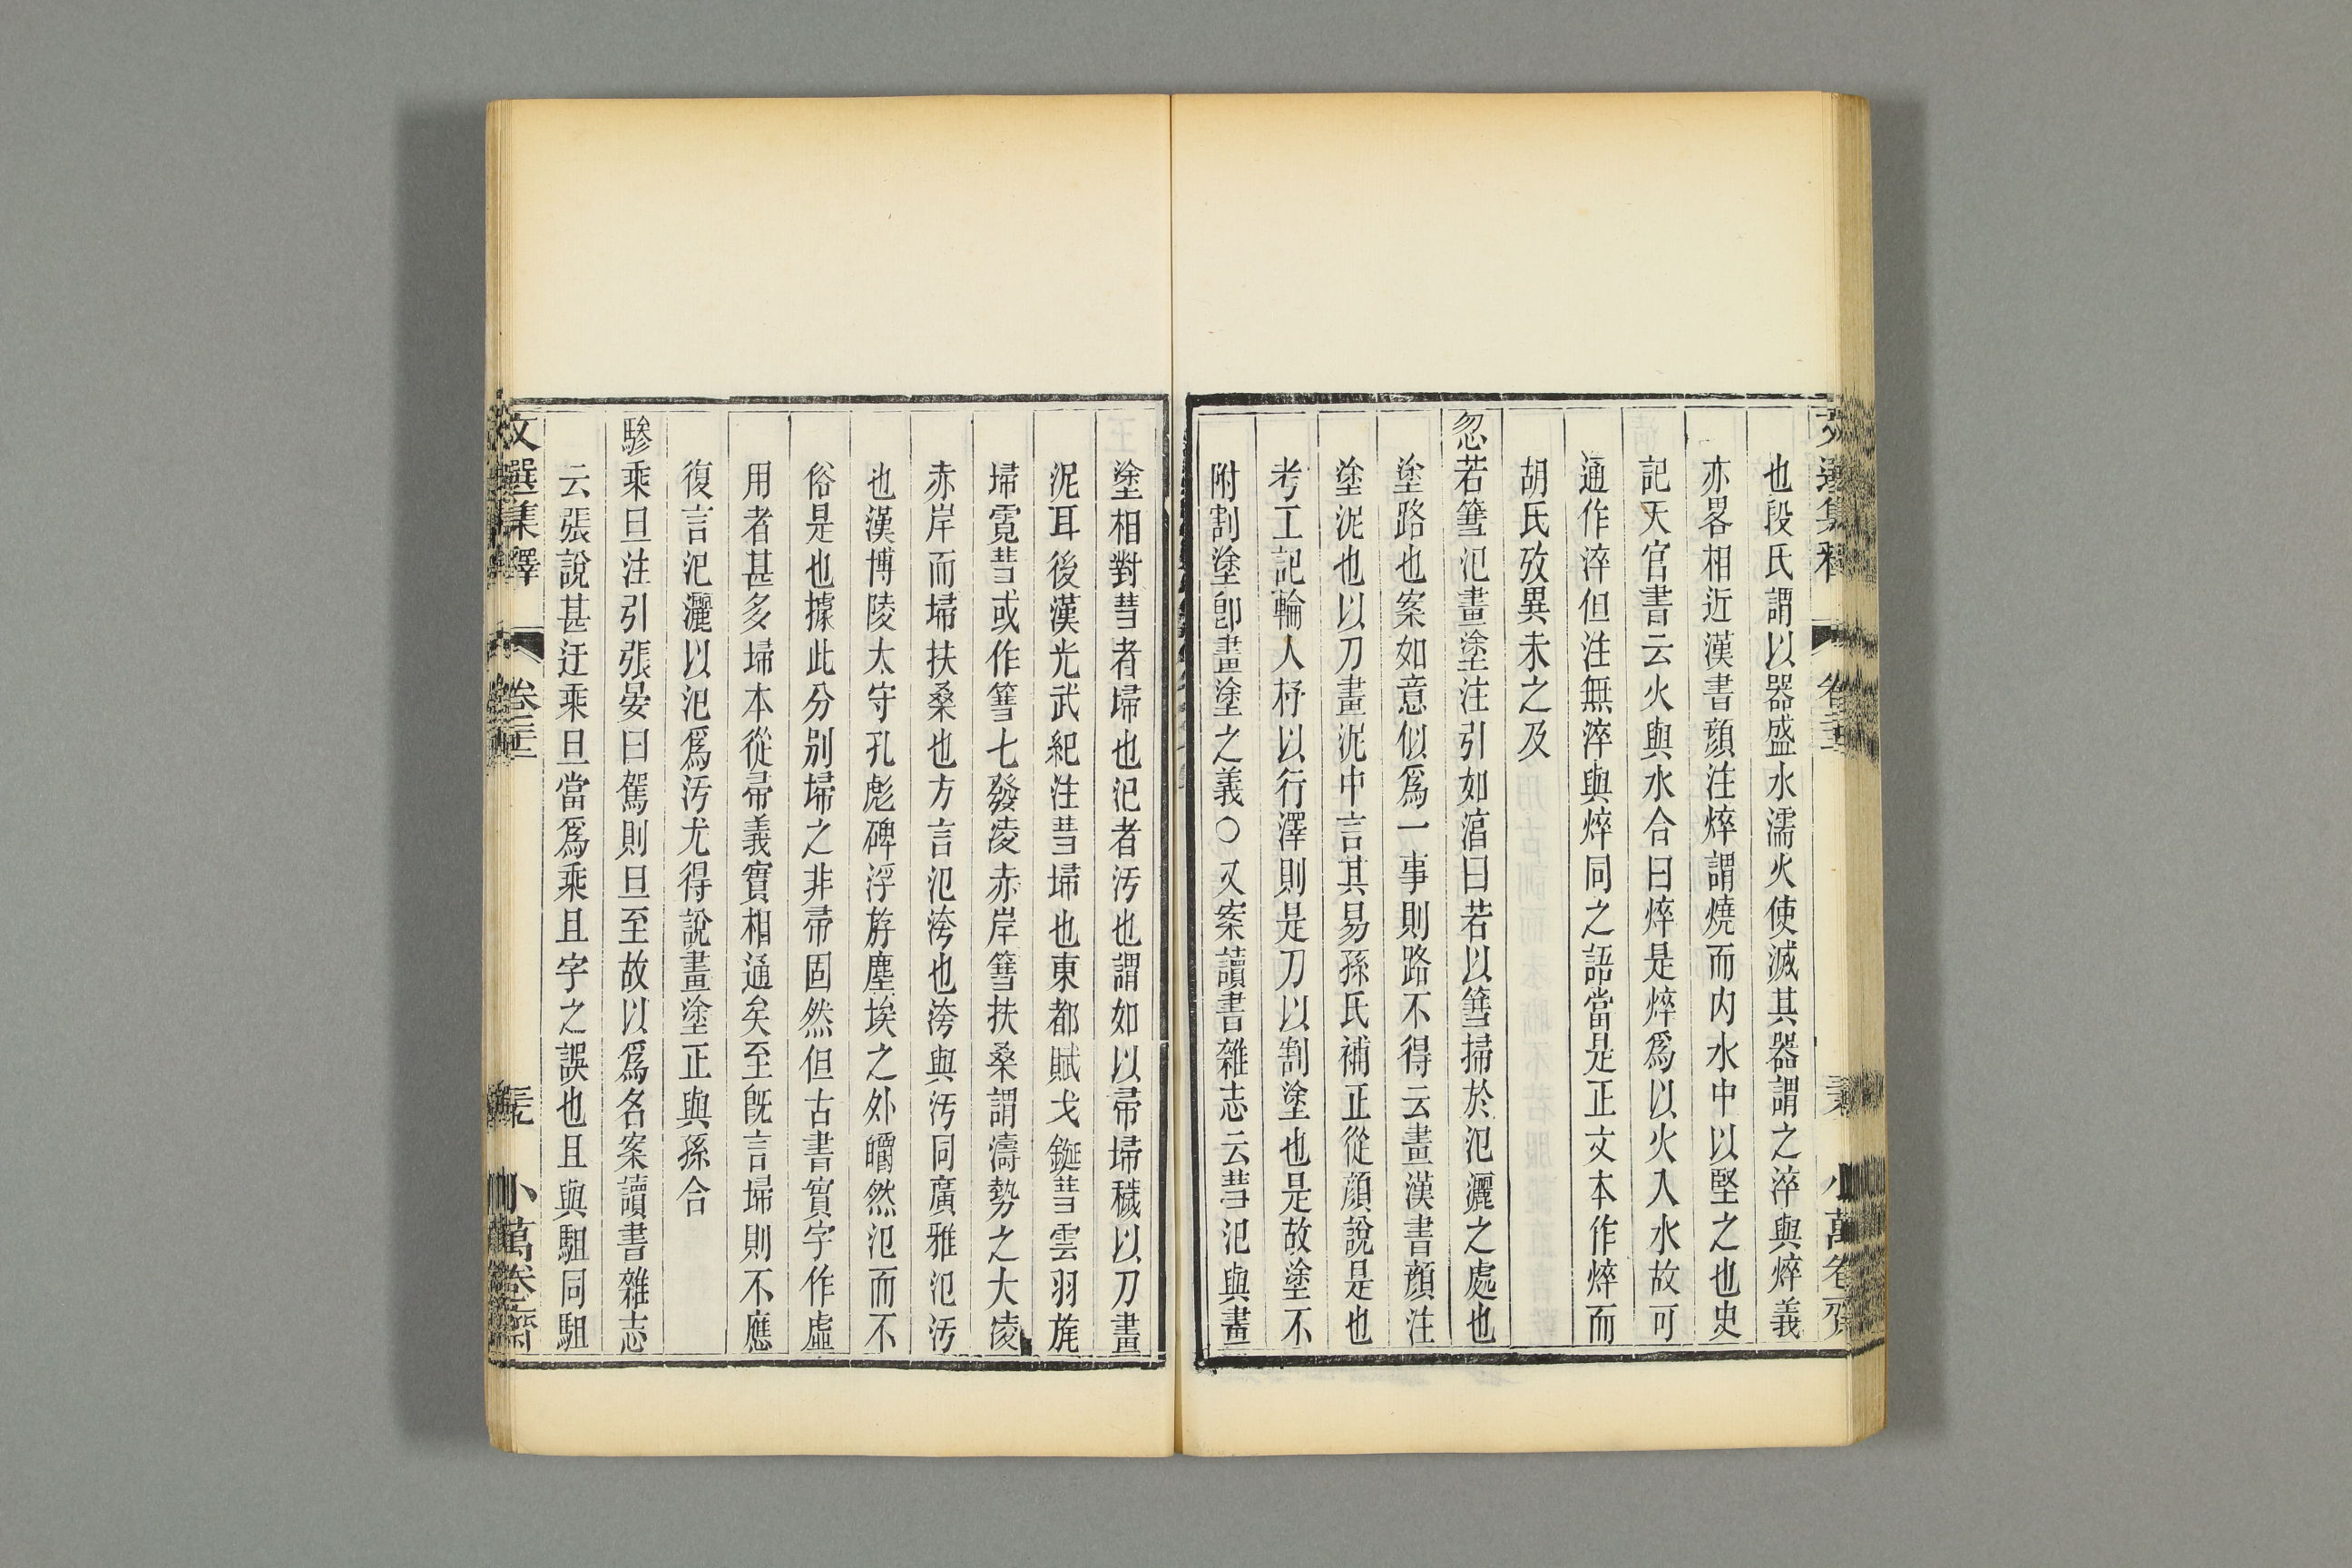 也段氏謂以器盛水濡火使滅其器謂之淬與焠義
亦畧相近漢書顔注焠謂燒而内水中以堅之也史
記天官書云火與水合曰焠是焠爲以火入水故可
通作淬但注無淬與焠同之語當是正文本作焠而
胡氏攷異未之及
忽若篲氾畫塗注引如湻曰若以篲掃於氾灑之處也
塗路也案如意似爲一事則路不得云畫漢書顔注
塗泥也以刀畫泥中言其易孫氏補正從顔說是也
考工記輪人杼以行澤則是刀以割塗也是故塗不
附割塗卽畫塗之義○又案讀書雜志云彗氾與畫
塗相對彗者埽也氾者汚也謂如以帚埽穢以刀畫
泥耳後漢光武紀注彗埽也東都賦戈鋋彗雲羽旄
埽霓彗或作篲七發凌赤岸篲扶桑謂濤勢之大凌
赤岸而埽扶桑也方言氾洿也洿與汚同廣雅氾汚
也漢博陵太守孔彪碑浮斿塵埃之外皭然氾而不
俗是也據此分别埽之非帚固然但古書實字作虛
用者甚多埽本從帚義實相通矣至旣言埽則不應
復言氾灑以氾爲汚尤得說畫塗正與孫合
驂乘旦注引張晏曰駕則旦至故以爲名案讀書雜志
云張說甚迂乘旦當爲乘且字之誤也且與駔同駔
文選集釋
小萬卷齋